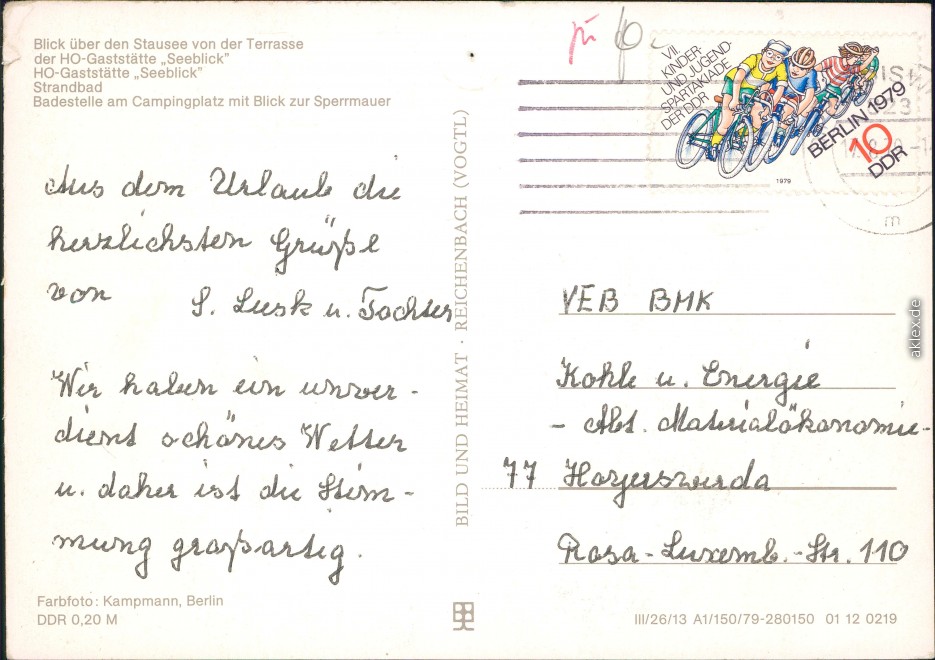 Blick über den Stausee von der Terrasse
der HO-Gaststätte „Seeblick"
HO-Gaststätte „Seeblick"
Strandbad
Badestelle am Campingplatz mit Blick zur Sperrmauer
Aus dem Urlaub die
herzlichsten Grüße
von S. Lusk u. Tochter
Wir haben ein unver-
dient schönes Wetter
u. daher ist die Stim-
mung großartig.
Farbfoto: Kampmann, Berlin
DDR 0,20 M
BILD UND HEIMAT · REICHENBACH (VOGTL)
VII.
KINDER-
UND JUGEND-
SPARTAKIADE
DER DDR
BERLIN 1979
10
DDR
1979
m
VEB BMK
Kohle u. Energie
- Abt. Materialökonomie-
77 Hoyerswerda
Rosa-Luxemb.-Str. 110
III/26/13 A1/150/79-280150 01 12 0219
aklex.de